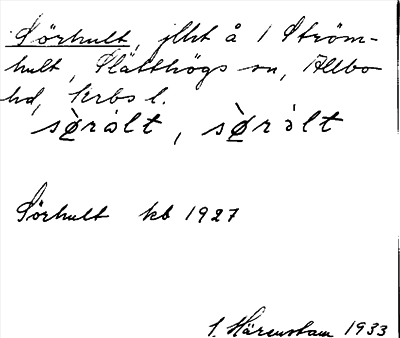 Sörhult, jllht å 1 Ström-
hult, Slätthögs sn, Allbo
hd, Krbs l.
sø̀rált, sø̀ràlt
Sörhult kb 1927
S. Härenstam 1933